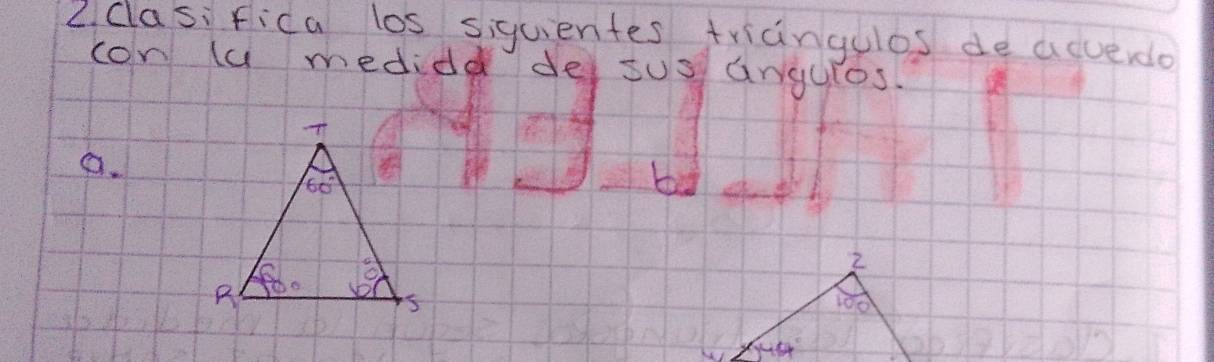 2. Clasifica los siguientes triángulos de acuerdo
con la medida de sus ángulos.
TALLER
a.
b.
T
60°
60°
60°
R
S
Z
100
W